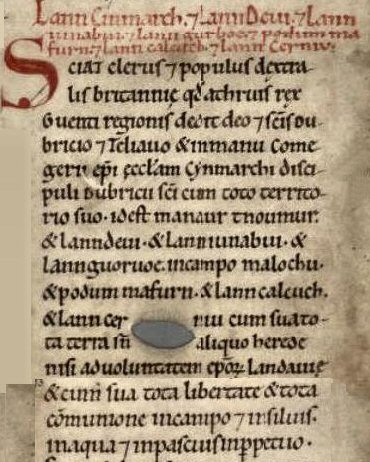 Lann Cinmarch. ⁊ Lann Deui. ⁊ Lann
iunabui. ⁊ lann guruoet ⁊ podum ma
furn ⁊ lann calcuch. ⁊ Lann Cerniu.
Sciat clerus ⁊ populus dextra
lis britannię qđ athruis rex
Guenti regionis dedit deo ⁊ scīs Du
bricio ⁊ Teliauo & inmanu Come
gern epī ęcclam Cynmarchi disci
puli Dubricii scī cum toto territo
rio suo. idest mainaur tnoumur.
& lanndeui. & lanniunabui. &
lannguoruoe. incampo malochu.
& podum mafurn. & lann calcuch.
& lann cer niu cum sua to
ta terra sn̄ aliquo herede
nisi aduoluntatem epōꝝ Landauię
& cum sua tota libertate & tota
cōmunione incampo ⁊ insiluis.
inaqua ⁊ inpascuis inppetuo.